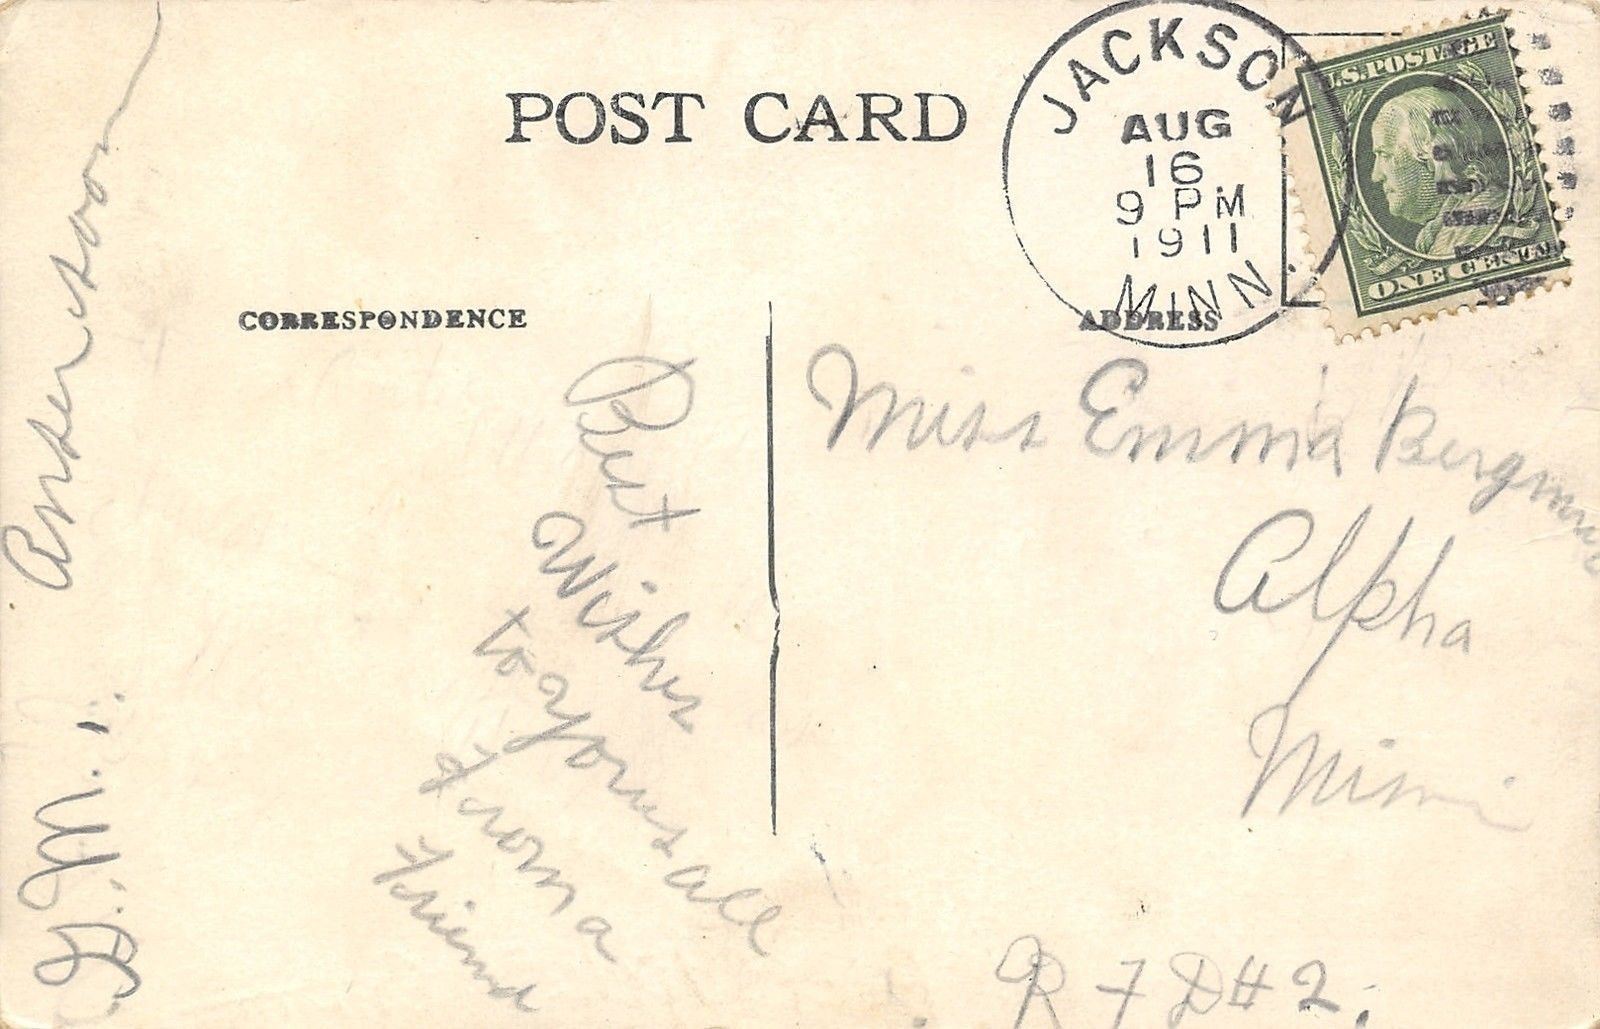 POST CARD
JACKSON
AUG
16
9 PM
1911
MINN.
U.S. POSTAGE
ONE CENT
CORRESPONDENCE
ADDRESS
Best
Wishes
to Yours all
From a
Friend
Miss Emma
Alpha
Minn
R F D # 2.
Answer soon